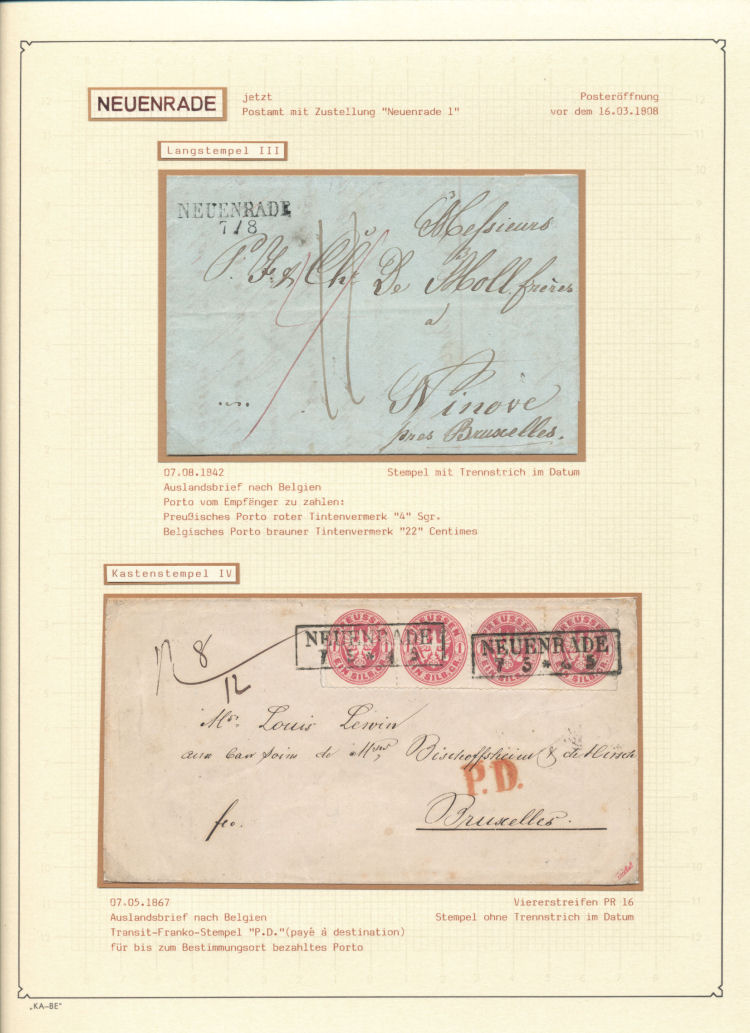 NEUENRADE
jetzt
Postamt mit Zustellung "Neuenrade 1"
Posteröffnung
vor dem 16.03.1808
Langstempel III
NEUENRADE
7/8
Messieurs
P. F. & Ch. De Moll frères
a
Ninove
près Bruxelles.
07.08.1842
Stempel mit Trennstrich im Datum
Auslandsbrief nach Belgien
Porto vom Empfänger zu zahlen:
Preußisches Porto roter Tintenvermerk "4" Sgr.
Belgisches Porto brauner Tintenvermerk "22" Centimes
Kastenstempel IV
PREUSSEN PREUSSEN PREUSSEN PREUSSEN
1 1
EIN SILB.GR. EIN SILB.GR. EIN SILB.GR. EIN SILB.GR.
NEUENRADE
7 5 * 4 5
NEUENRADE
7 5 * 5
8
12
Mr. Louis Lewin
aux bons soins de Mssrs Bischoffsheim & de Hirsch
P.D.
fco.
Bruxelles.
07.05.1867
Viererstreifen PR 16
Auslandsbrief nach Belgien
Stempel ohne Trennstrich im Datum
Transit-Franko-Stempel "P.D."(payé à destination)
für bis zum Bestimmungsort bezahltes Porto
„KA–BE"